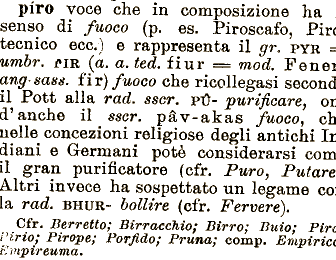 piro voce che in composizione ha
senso di fuoco (p. es. Piroscafo, Piro
tecnico ecc.) e rappresenta il gr. PYR =
umbr. PIR (a. a. ted. fiur = mod. Feuer
ang-sass. fir) fuoco che ricollegasi second
il Pott alla rad. sscr. PÛ- purificare, on
d'anche il sscr. pâv-akas fuoco, ch
nelle concezioni religiose degli antichi In
diani e Germani poté considerarsi com
il gran purificatore (cfr. Puro, Putare
Altri invece ha sospettato un legame co
la rad. BHUR- bollire (cfr. Fervere).
Cfr. Berretto; Birracchio; Birro; Buio; Pira
Pirio; Pirope; Porfido; Pruna; comp. Empirico
Empireuma.